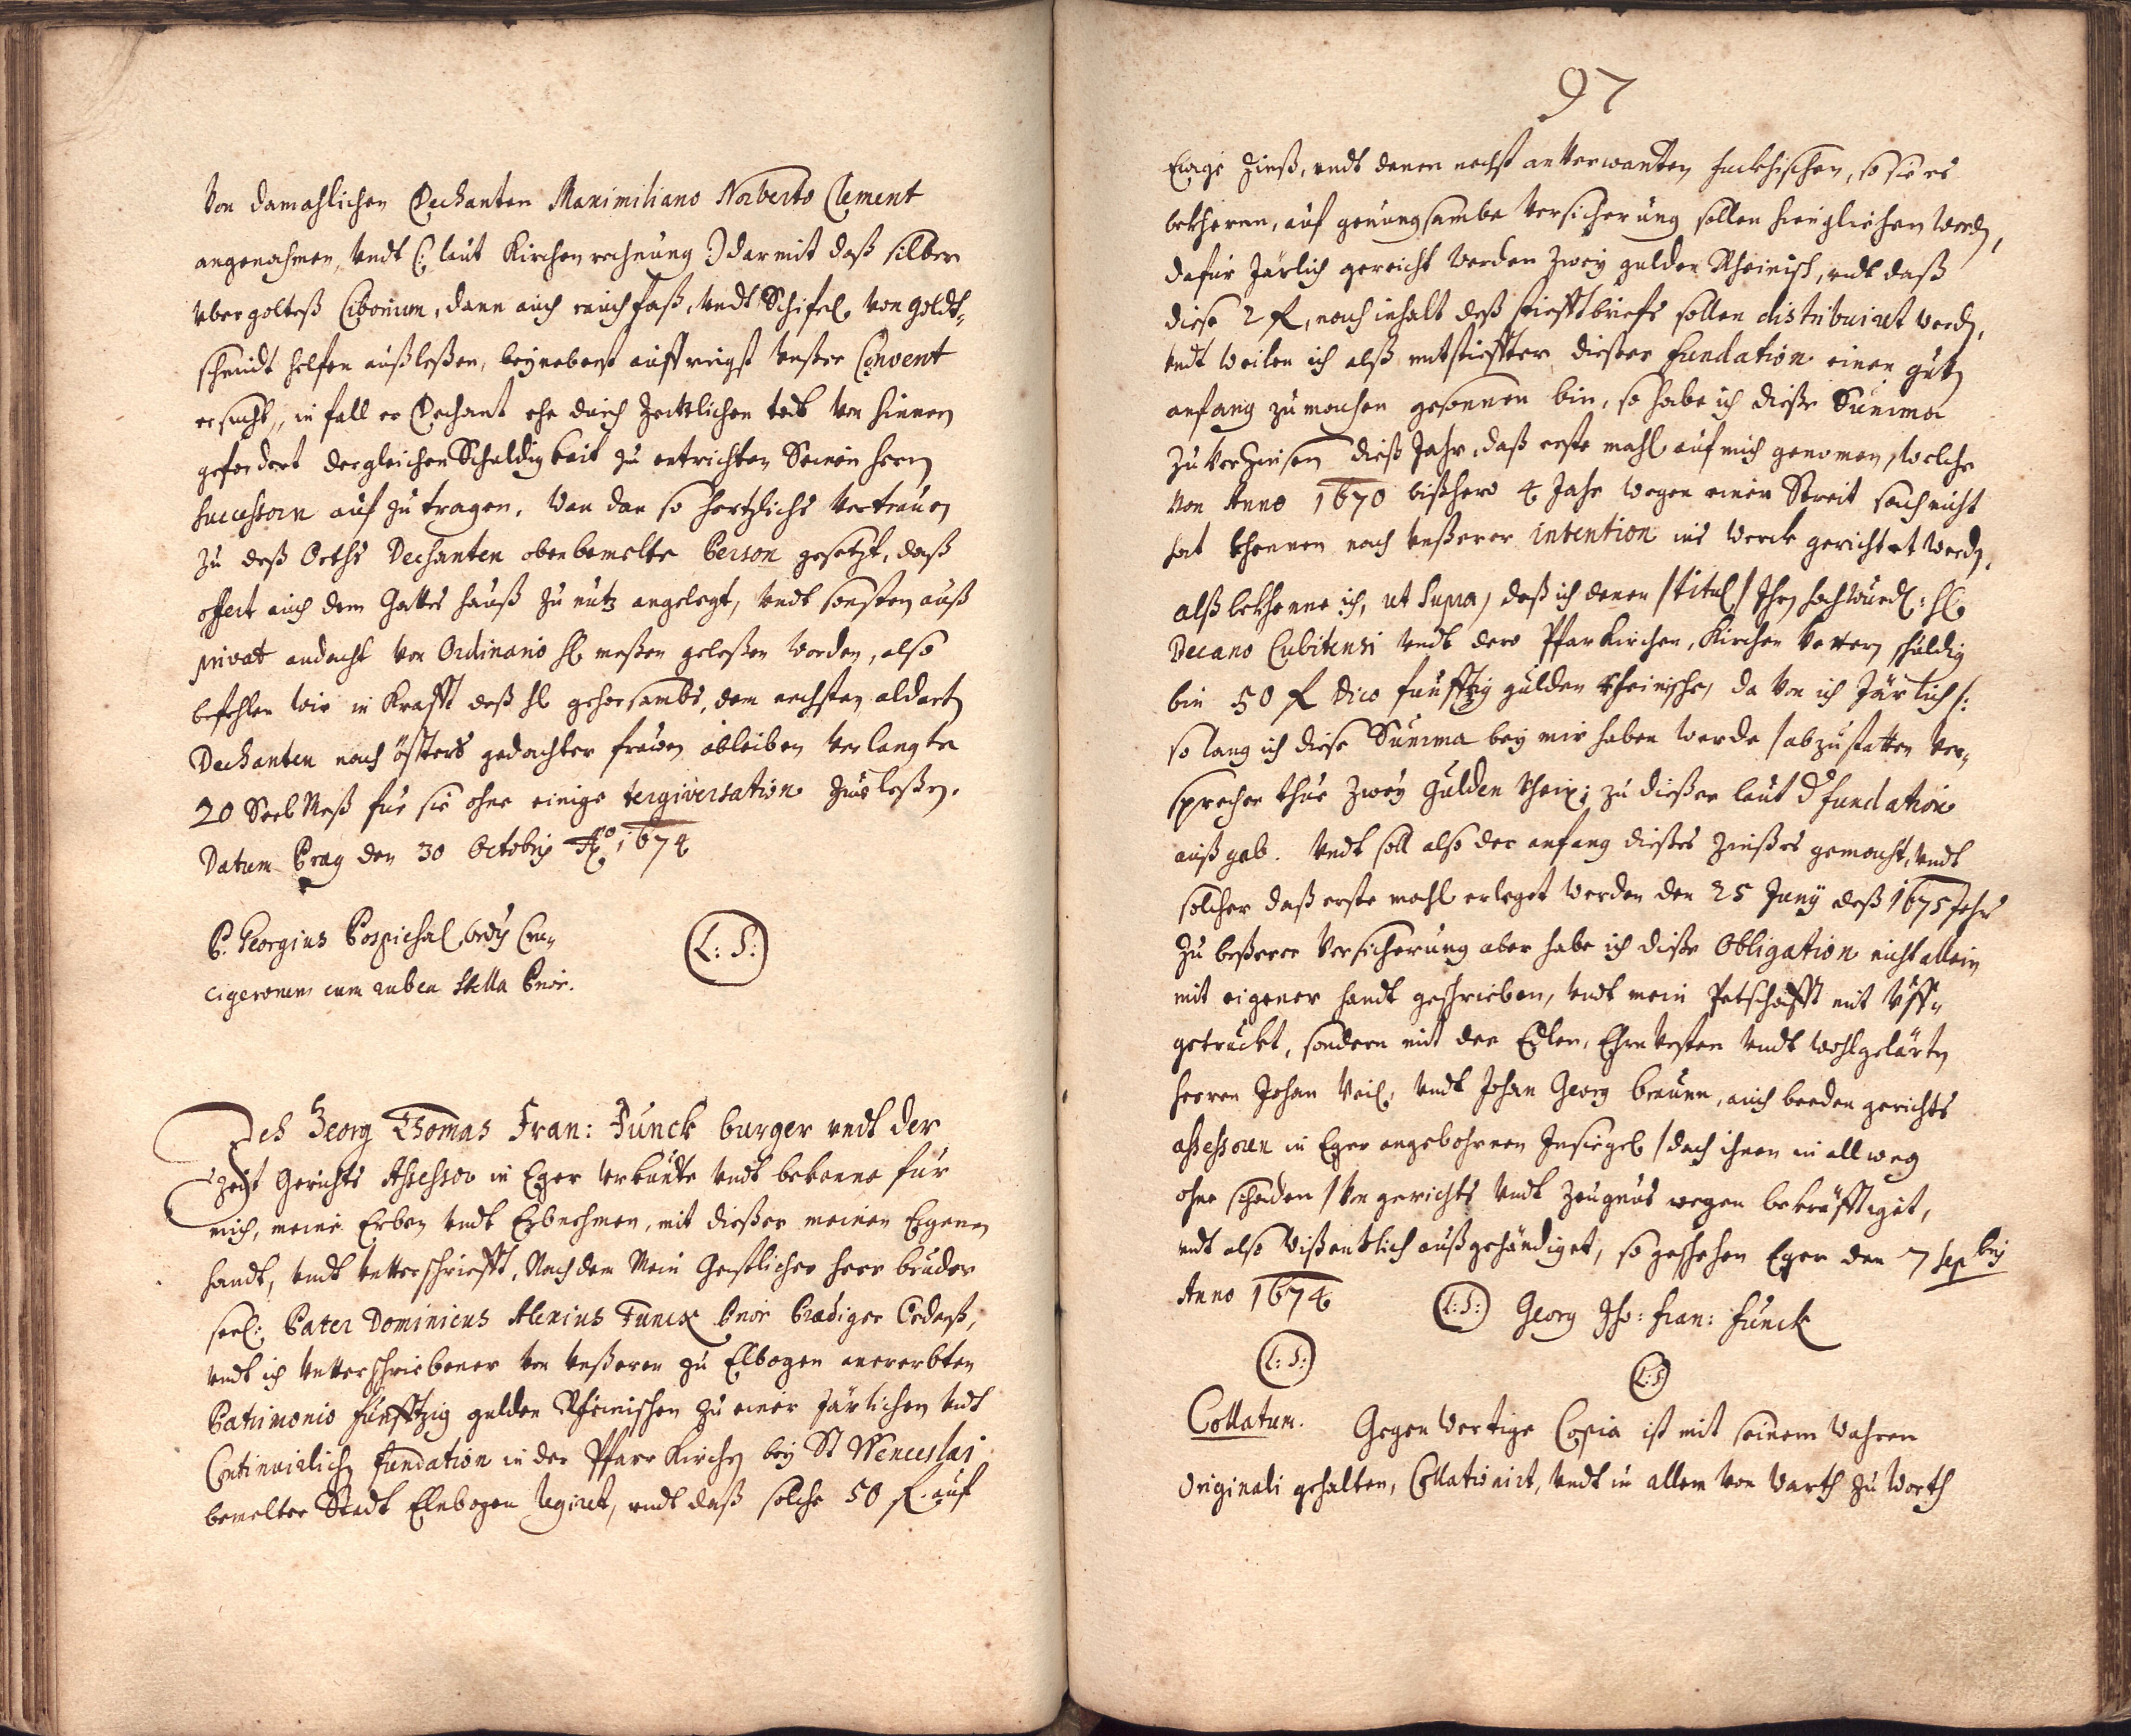 Von damahlichen Dechanten Maximiliano Norberto Clement
angenohmen, Vndt (: laut Kirchen rechnung :) darmit daß silber
vbergolteß Ciborium, dann auch rauchfaß, vndt Schifel von goldt-
schmidt helfen außleßen, beynebenst auffrigst vnßer Convent
ersucht, in fall er Dechant ehe durch Zeittlichen todt von hinnen
gefordert dergleichen Schuldigkeit zu entrichten Seinen herrn
successorn auf zu tragen. Wan dan so hertzliches vertrauen
zu deß Orths Dechanten obenbemelte Person gesetzt, daß
offert auch dem Gottes hauß zu nutz angelegt, vndt sonsten auß
privat andacht von Ordinario hl meßen geleßen worden, also
befehlen wir in Krafft deß hl gehorsambs, dem nechsten aldorten
Dechanten nach österß gedachter frawen ableiben verlangte
20 Seel Meß fur sie ohne einige tergiversation zu leßen.
Datum Prag den 30 Octobris Ao 1674
P. Georgius Pospichal Ordis Cru-
cigerorum cum rubea Stella Prior.
(L: S:)
Ich Georg Thomas Fran: Funck burger vndt der
Zeit Gerichts Assessor in Eger vrkundte vndt bekenne für
mich, meine Erben vndt Erbnehmen, mit dießer meiner Eigenen
handt, vndt vntterschrifft, Nach dem Mein Geistlicher herr bruder
seel: Pater Dominicus Alexius Funck Prior Prediger Ordenß,
vndt ich vntterschriebener von vnßeren zu Elbogen anererbten
Patrimonio funfftzig gulden Rheinischen zu einer järlichen vndt
Continuirlichen fundation in der Pfarr Kirchen bey St Wenceslai
bemelter Stadt Elnbogen legiret, vndt daß solche 50 f. auf
97
Ewige Zinß, vndt denen nechst anverwanten funckhischen, so sie es
bekheren, auf genungsambe Versicherung sollen hingeliehen werden,
dafür Järlich gereicht werden Zwey gulden Rheinisch, vndt daß
diese 2 f., nach inhalt deß stifftbriefs sollen distribuiret werden,
vndt weilen ich alß mitstieffter dießer fundation einen guten
anfang zu machen gesonnen bin, so habe ich dieße Summa
zu verzinsen dieß Jahr, daß erste mahl auf mich genomen, welche
von Anno 1670 bißhero 4 Jahr wegen einer Streit sach nicht
hat khennen nach vnßerer intention ins werck gerichtet werden,
alß bekhenne ich, ut supra, daß ich denen /titul/ Ihro hochwürd: hl
Decano Cubitensi vndt dero Pfarkirchen, Kirchen vettern schuldig
bin 50 f dico funfftzig gülden Rheinische, da von ich Järlich /:
so lang ich diese Summa bey mir haben werde / abzustatten ver-
sprechen thue Zwey Gulden Rhein: zu dießer laut d fundation
auß gab. Vndt soll also der anfang dießes Zinßes gemacht, vndt
solcher daß erste mahl erleget werden den 25 Junÿ deß 1675 Jahrs
Zu beßerer Versicherung aber habe ich diße Obligation nicht allein
mit eigener handt geschrieben, vndt mein Petschafft mit Vff-
getruckt, sondern mit der Edlen, Ehrnvesten vndt wohlgelärten
herren Johan Veil, vndt Johan Georg Braunn, auch beeden gerichts
assessorn in Eger angebohrnen Insiegel /doch ihnen in allweg
ohne schaden / von gerichts vndt Zeugnus wegen bekräfftiget,
vndt also wißentlich außgehändiget, so geschehen Eger den 7 Sepbris
Anno 1674 (L: S:) Georg Tho: Fran: Funck
(L: S:) (L: S)
Collatum. Gegenwertige Copia ist mit seinem wahren
Originali gehalten, Collationirt, vndt in allem von Worth zu Worth